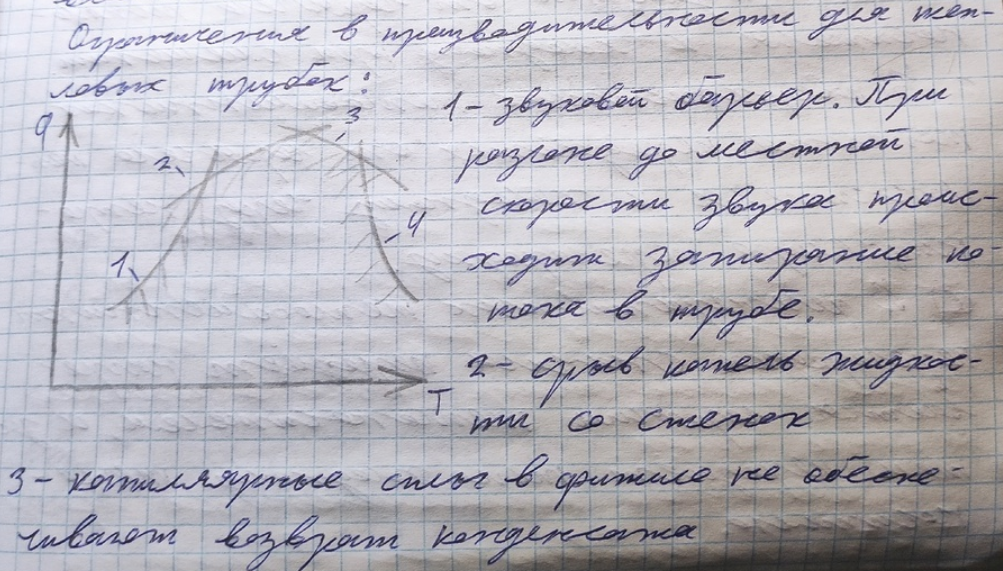 Ограничения в производительности для теп-
ловых трубок:
q
1 2 3 4
T
1 – звуковой барьер. При
разгоне до местной
скорости звука проис-
ходит запирание по-
тока в трубе.
2 – срыв капель жидкос-
ти со стенок
3 – капиллярные силы в фитиле не обеспе-
чивают возврат конденсата